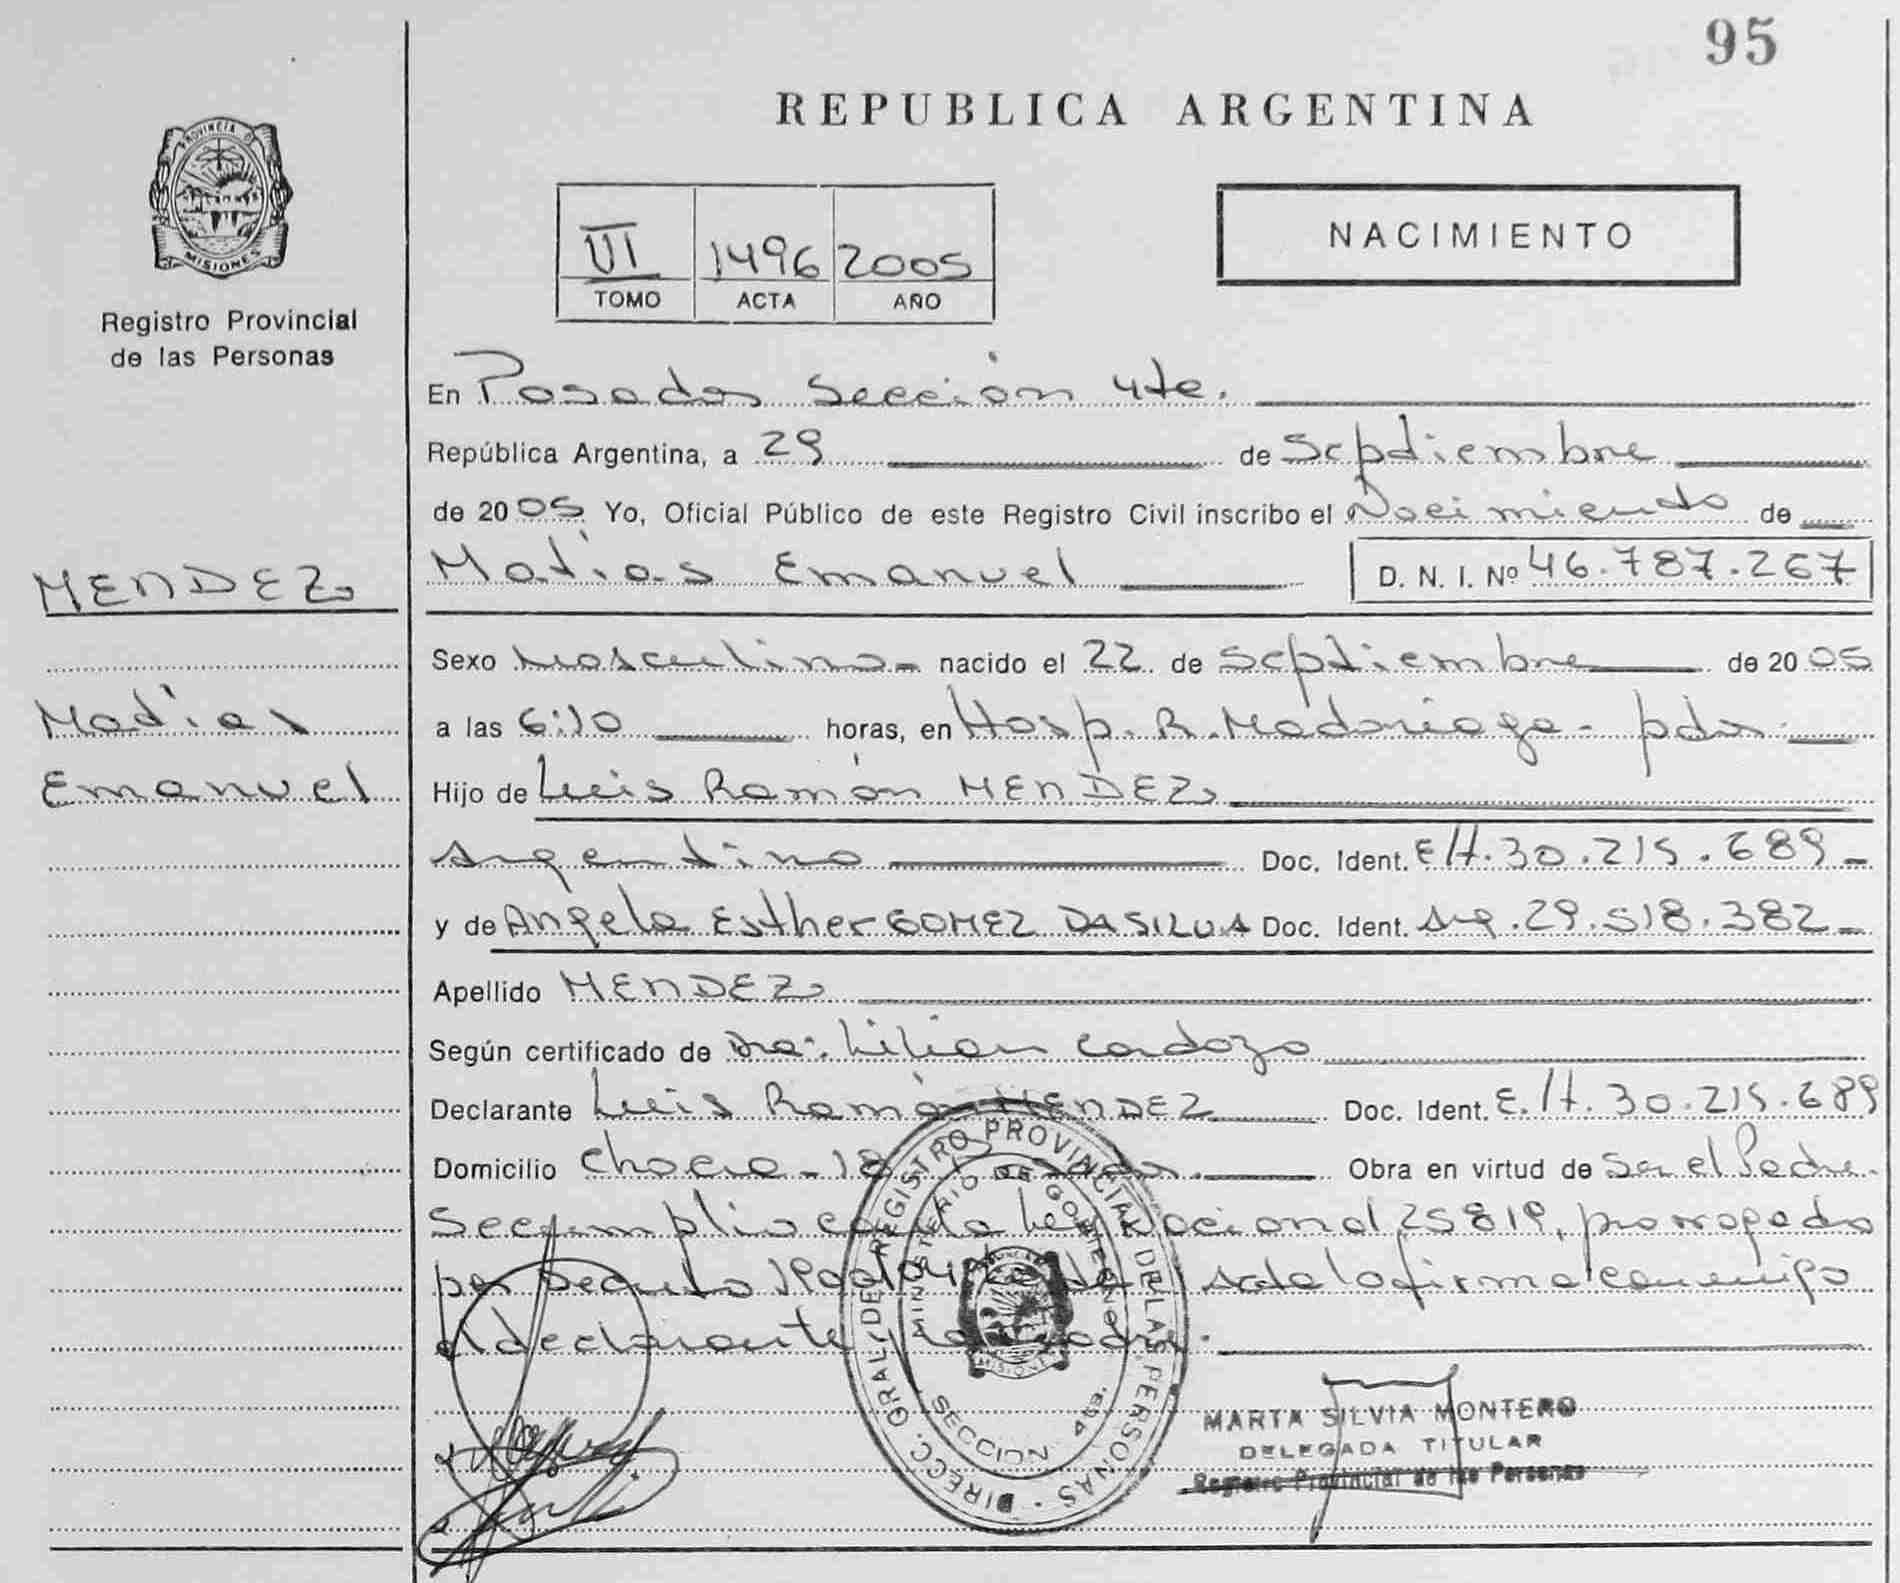 95
REPUBLICA ARGENTINA
PROVINCIA DE
MISIONES
Registro Provincial
de las Personas
VI 1496 2005
TOMO ACTA AÑO
NACIMIENTO
En Posadas Sección 4ta.
República Argentina, a 29 de Septiembre
de 2005 Yo, Oficial Público de este Registro Civil inscribo el Nacimiento de
MENDEZ
Matias Emanuel D. N. I. Nº 46.787.267
Sexo Masculino nacido el 22 de Septiembre de 2005
Matias
a las 6:10 horas, en Hosp. R. Madariaga - pdas.
Emanuel
Hijo de Luis Ramón MENDEZ
Argentino Doc. Ident. E/t. 30.215.689
y de Angela Esther GOMEZ DASILVA Doc. Ident. Arg. 29.518.382
Apellido MENDEZ
Según certificado de Dra. Lilian Cardozo
Declarante Luis Ramón MENDEZ Doc. Ident. E./t. 30.215.689
Domicilio Chacra - 18 Obra en virtud de Ser el Padre.
Se cumplio con la Ley Nacional 25819, prorrogado
por Decreto firma conmigo
el declarante
DIRECC. GRAL. DE REGISTRO PROVINCIAL DE LAS PERSONAS
MINISTERIO DE GOBIERNO
SECCION 4ta.
MISIONES
MARTA SILVIA MONTERO
DELEGADA TITULAR
Registro Provincial de las Personas